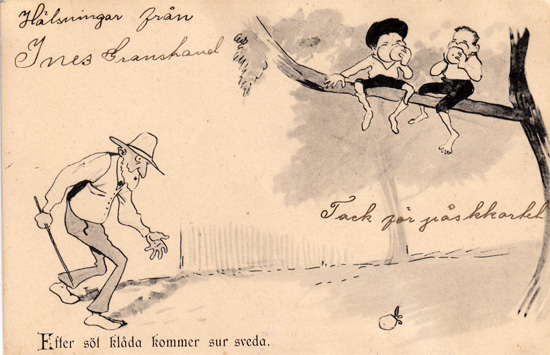 Hälsningar från
Ines
Tack för påskkortet
Efter söt klåda kommer sur sveda.